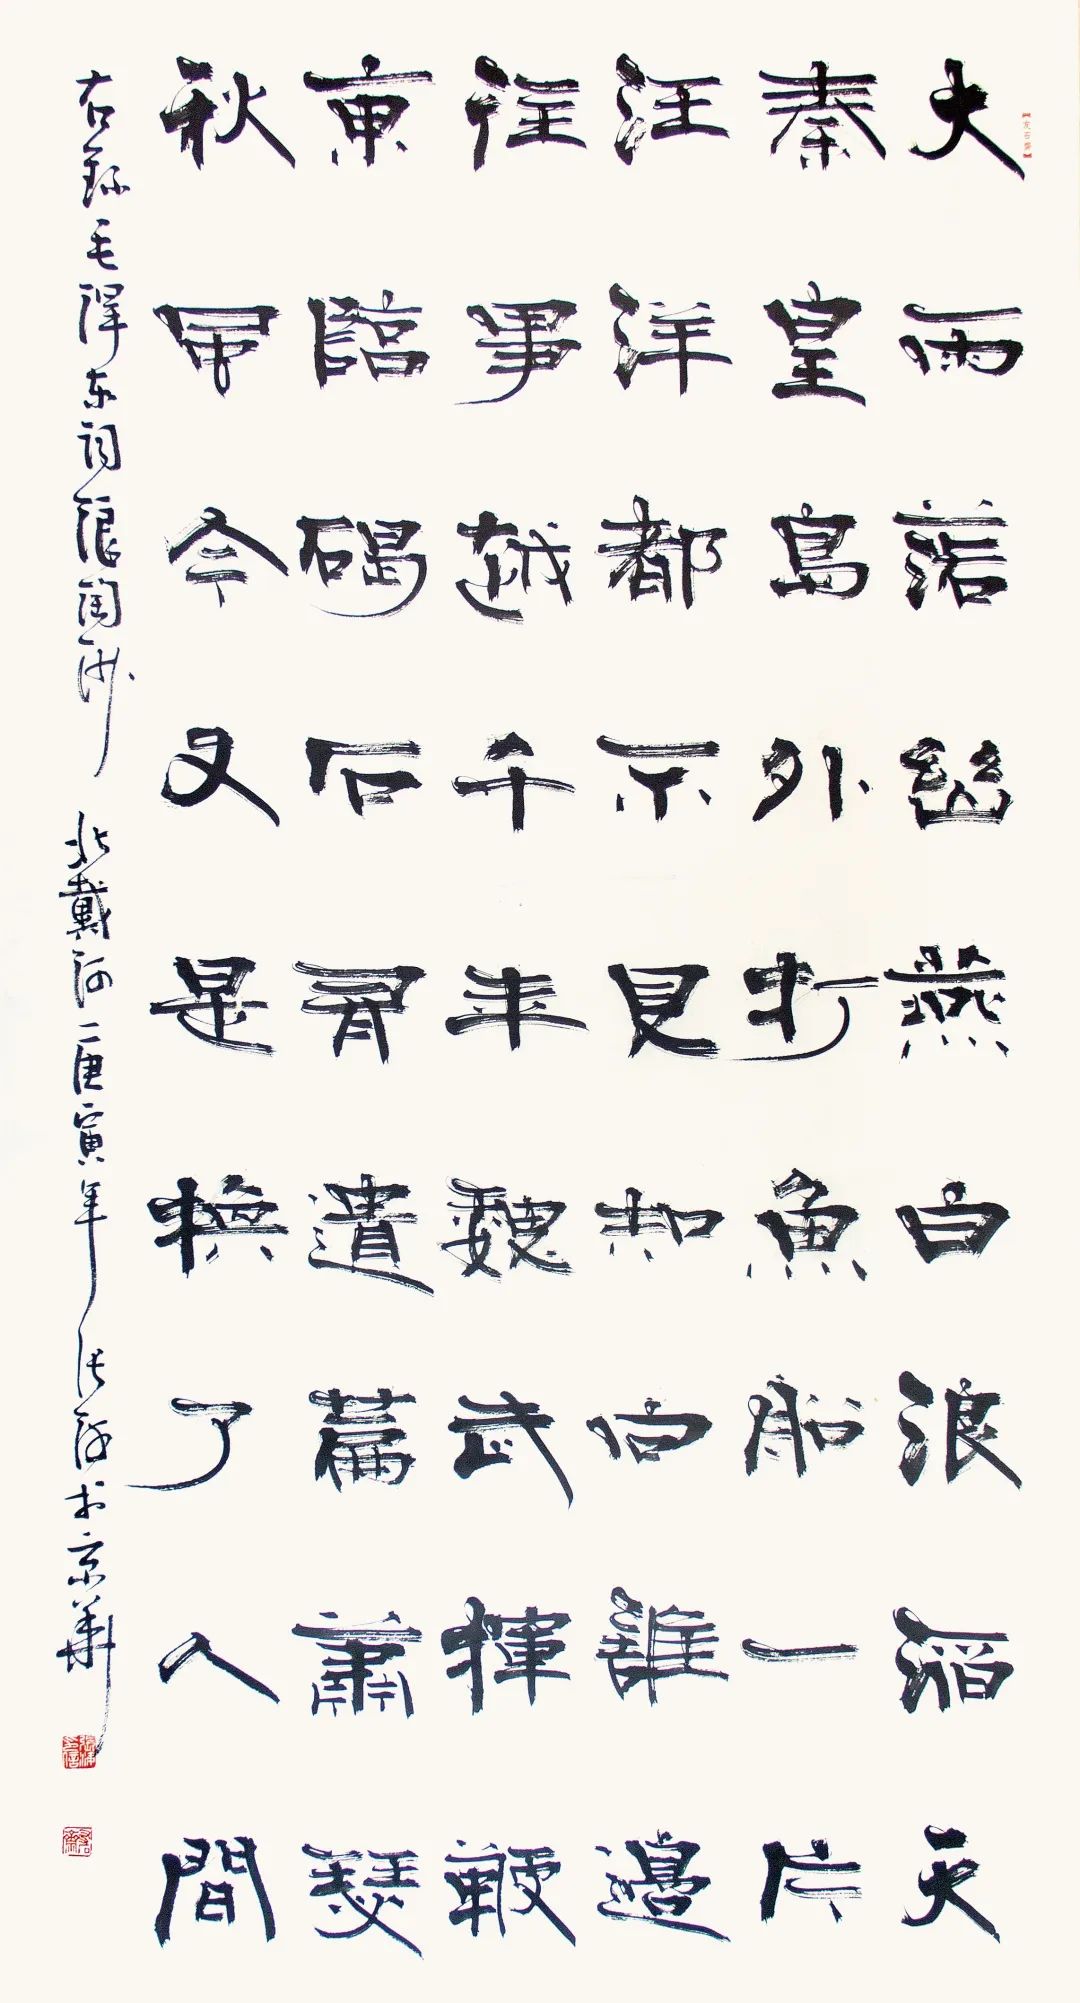 大雨落幽燕白浪滔天
秦皇島外打魚船一片
汪洋都不見知向誰邊
往事越千年魏武揮鞭
東臨碣石有遺篇蕭瑟
秋風今又是換了人間
右録毛澤东詞浪淘沙 北戴河 庚寅年 京華